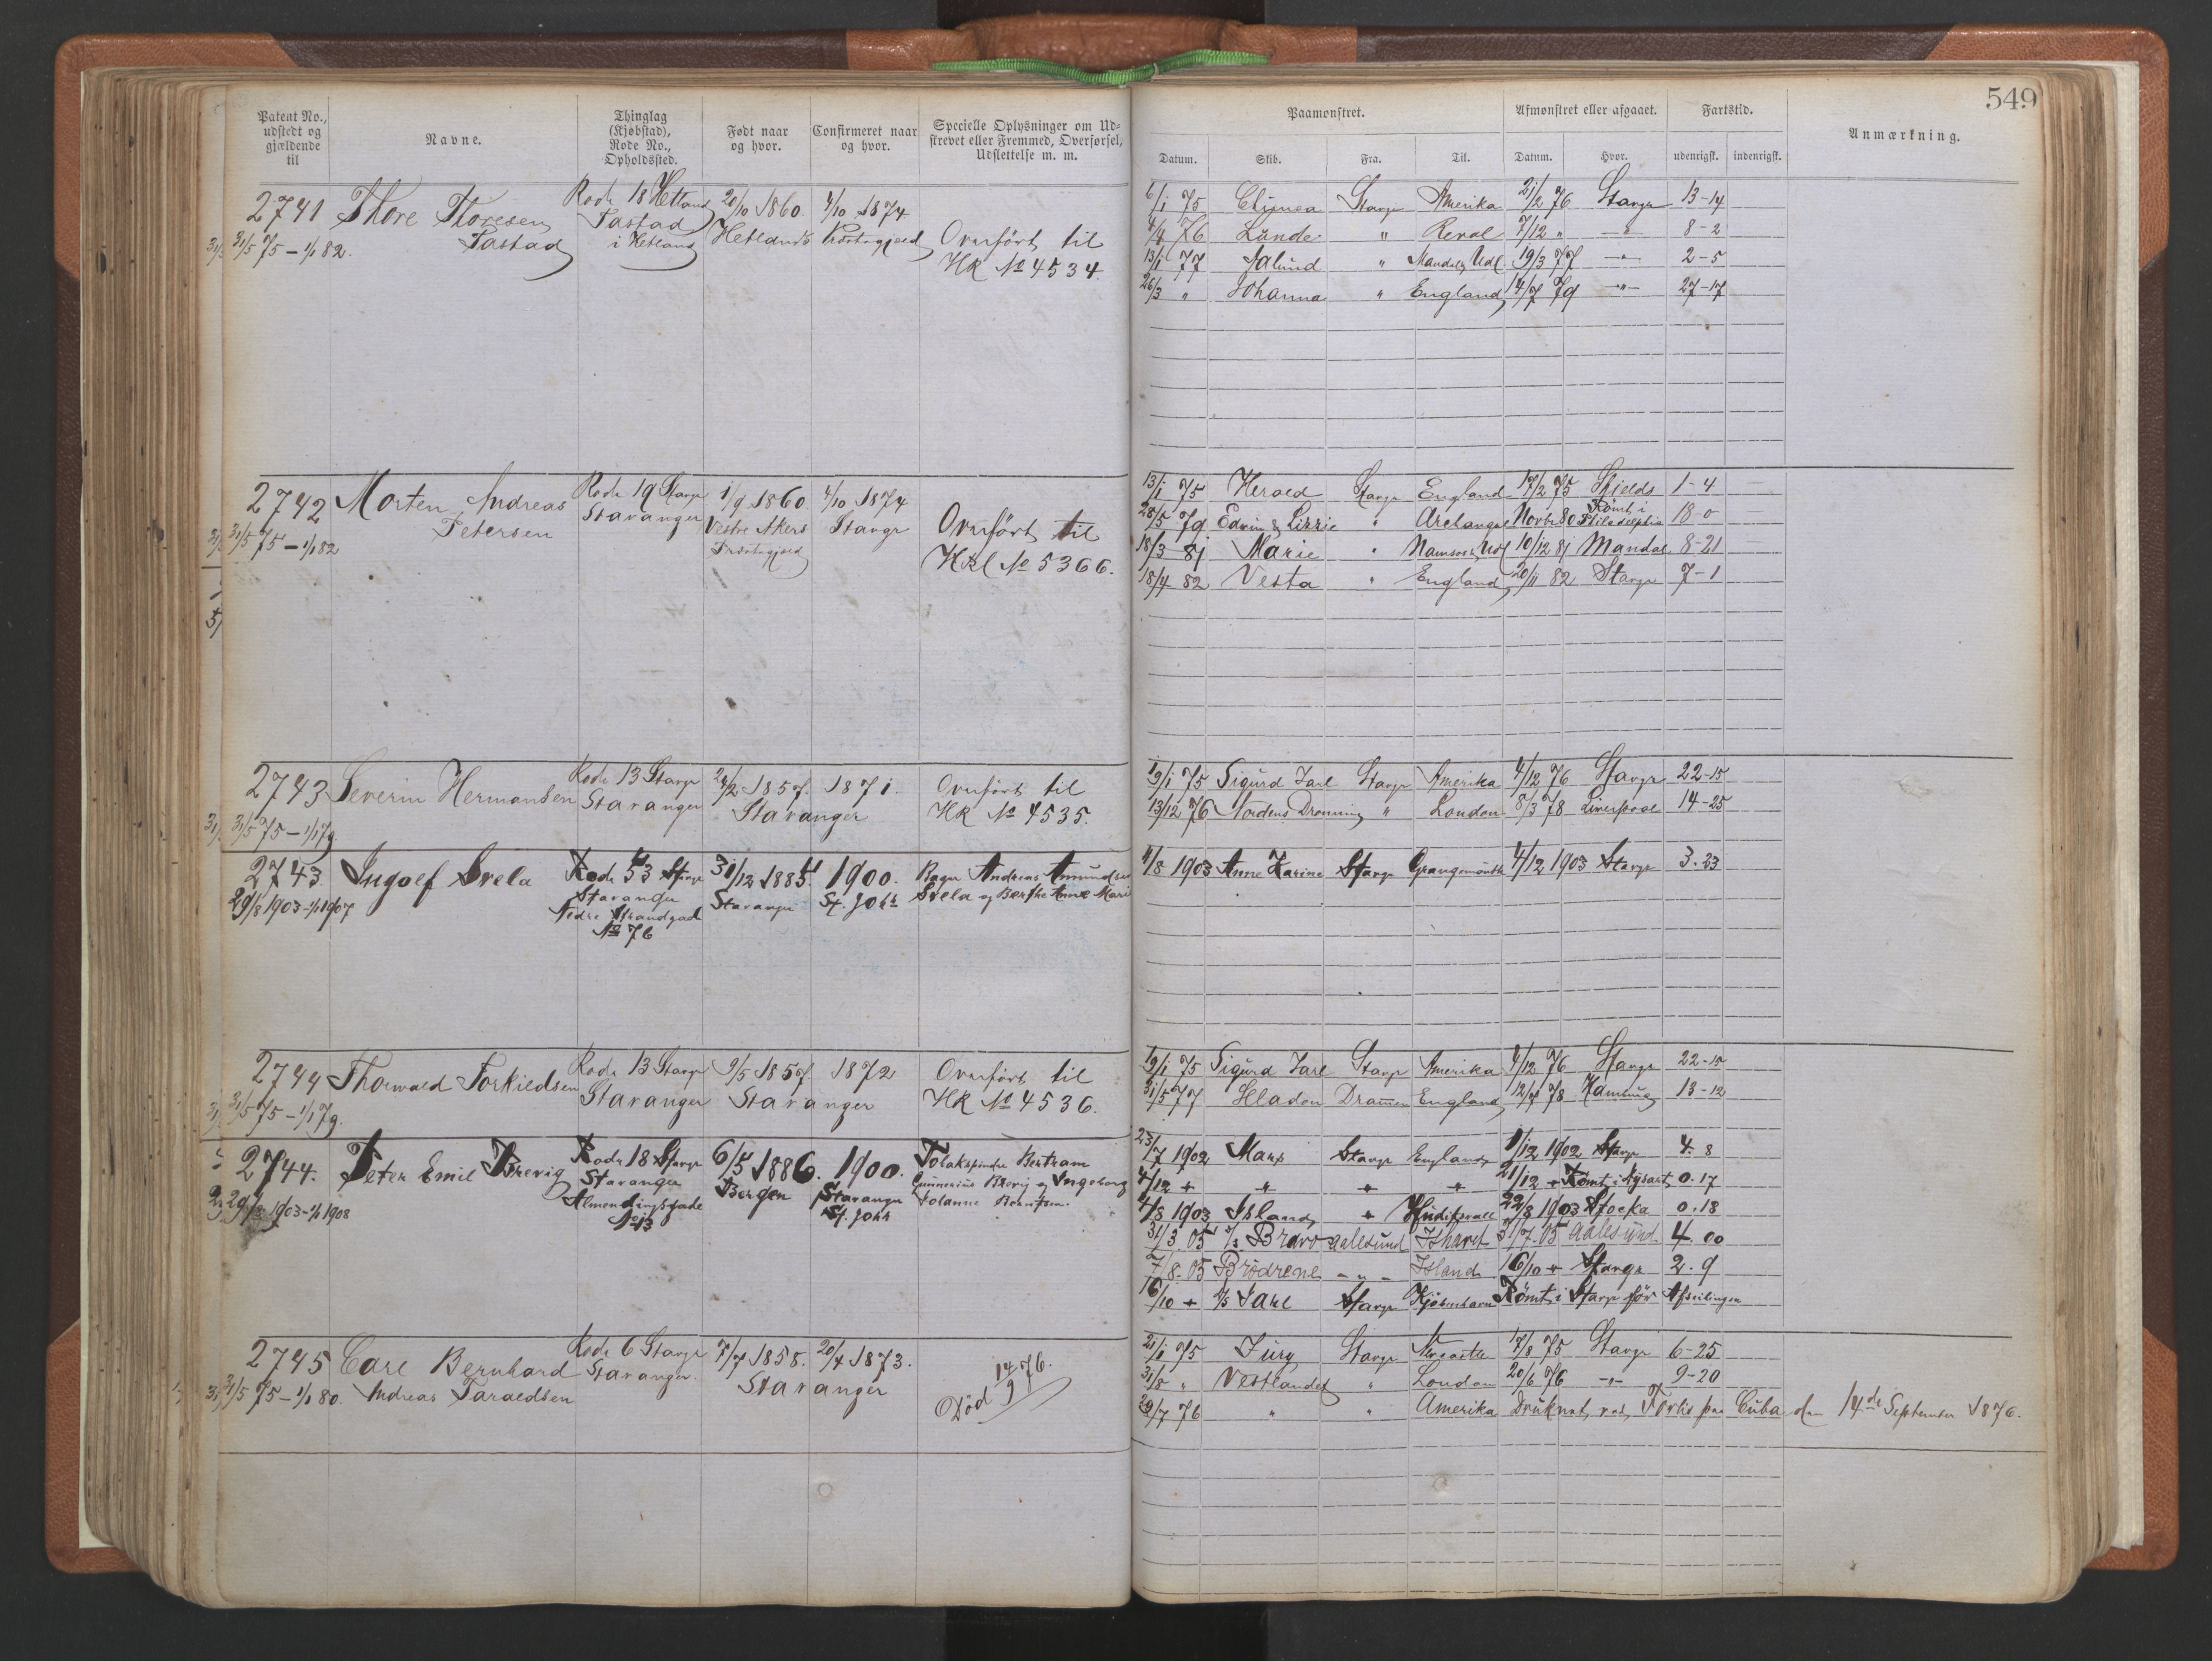 549
Patent No., udstedt og gjældende til
Navne.
Thinglag (Kjøbstad), Rode No., Opholdssted.
Født naar og hvor.
Confirmeret naar og hvor.
Specielle Oplysninger om Udskrevet eller Fremmed, Overførsel, Udslettelse m. m.
Paamønstret.
Afmønstret eller afgaaet.
Fartstid.
Anmærkning.
Datum. Skib. Fra. Til. Datum. Hvor. udenrigsk. indenrigsk.
2741 Thore Thoresen Rode 18 Hetland 20/10 1860. 4/10 1874
Tastad Tastad i Hetland Hetlands Præstegjeld Overført til
31/5 75 – 1/1 82. HR No 4534.
6/1 75 Stavgr Amerika 21/2 76 Stavgr 13-14
4/4 76 Lunde " Reval 7/12 " -"- 8-2
13/1 77 " Mandal, Udl. 19/3 77 -"- 2-5
26/3 " Johanna " England 14/7 79 -"- 27-17
2742 Morten Andreas Rode 19 Stavgr 1/9 1860. 4/10 1874
Petersen Stavanger Vestre Akers Præstegjeld Stavgr Overført til
31/5 75 – 1/1 82 HRl No 5366.
13/1 75 Herold Stavgr England 17/2 75 Shields 1-4
28/5 79 Edwin & Lizzie " Archangel Novbr 80 Rømt i Philadelphia 18-0
18/3 81 Marie " Namsos, Udl 10/12 81 Mandal 8-21
18/4 82 Vesta " England 20/11 82 Stavgr 7-1
2743 Severin Hermansen Rode 13 Stavgr 24/2 1857. 1871.
Stavanger Stavanger Overført til
31/5 75 – 1/1 79. HR No 4535.
19/1 75 Sigurd Jarl Stavgr Amerika 4/12 76 Stavgr 22-15
13/12 76 Nordens Dronning " London 8/3 78 Liverpool 14-25
2743. Ingolf Svela Rode 53 Stavgr 31/12 1885. 1900. Andreas Amundsen
29/8 1903 – 1/1 1907 Stavanger Stavanger St. Joh: Svela og Berthe Anne Mari
Nedre Strandgad No 76
4/8 1903 Anne Karine Stavgr Grangemouth 4/12 1903 Stavgr 3.23
2744 Thorwald Torkildsen Rode 13 Stavgr 9/5 1857 1872
Stavanger Stavanger Overført til
31/5 75 – 1/1 79. HR No 4536.
19/1 75 Sigurd Jarl Stavgr Amerika 4/12 76 Stavgr 22-15
31/5 77 Hladen Dramen England 12/7 78 Hamburg 13-12
2744. Peter Emil Brevig Rode 18 Stavgr 6/5 1886. 1900. Tobakspinder Bertram
29/8 1903 – 1/1 1908 Stavanger Bergen Stavanger St. Joh: Gunnerius Brevig og Ingeborg
Almendingsgade No 13 Jolanne Berntsen.
23/7 1902 Marx Stavgr England 1/12 1902 Stavgr 4.8
4/12 " " " " 21/12 " Rømt i 0.17
4/8 1903 Island " Hudiksvall 22/8 1903 Stocka 0.18
31/3.05 Bravo Aalesund Ishavet 31/7.05 Aalesund. 4.00
7/8.05 Brødrene -"- Island 16/10 " Stavgr 2.9
16/10 " Jarl Stavgr Kjøbenhavn Rømt i Stavgr før Afseilingen
2745 Carl Bernhard Rode 6 Stavgr 7/7 1858. 20/4 1873.
Andreas Taraldsen Stavanger. Stavanger
31/5 75 – 1/1 80. Død 14/9 76.
21/1 75 Stavgr Newcastle 17/8 75 Stavgr 6-25
31/8 " Vestlandet " London 20/6 76 -"- 9-20
29/7 76 " " Amerika Druknet ved Forlis paa Cuba den 14de September 1876.